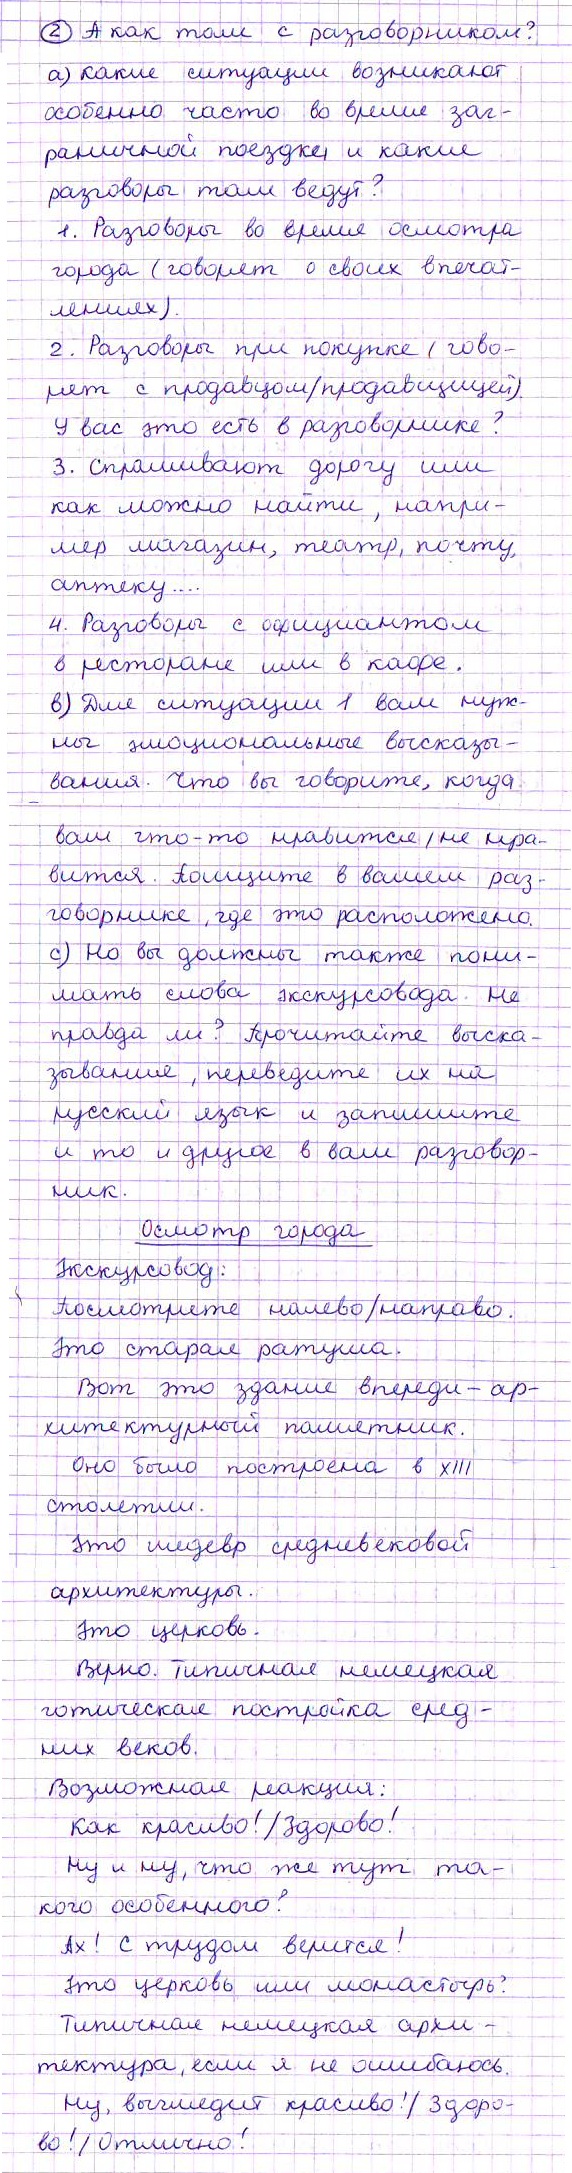 ② А как там с разговорником?
а) Какие ситуации возникают
особенно часто во время заг-
раничной поездке, и какие
разговоры там ведут?
1. Разговоры во время осмотра
города (говорят о своих впечат-
лениях).
2. Разговоры при покупке (гово-
рят с продавцом/продавщицей).
У вас это есть в разговорнике?
3. Спрашивают дорогу или
как можно найти, напри-
мер магазин, театр, почту,
аптеку....
4. Разговоры с официантом
в ресторане или в кафе.
в) Для ситуации 1 вам нуж-
ны эмоциональные высказы-
вания. Что вы говорите, когда
вам что-то нравится/не нра-
вится. Поищите в вашем раз-
говорнике, где это расположено.
с) Но вы должны также пони-
мать слова экскурсовода. Не
правда ли? Прочитайте выска-
зывание, переведите их на
русский язык и запишите
и то и другое в ваш разговор-
ник.
Осмотр города
Экскурсовод:
Посмотрите налево/направо.
Это старая ратуша.
Вот это здание впереди - ар-
хитектурный памятник.
Оно было построена в XIII
столетии.
Это шедевр средневековой
архитектуры.
Это церковь.
Верно. Типичная немецкая
готическая постройка сред-
них веков.
Возможная реакция:
Как красиво!/Здорово!
Ну и ну, что же тут та-
кого особенного?
Ах! С трудом верится!
Это церковь или монастырь?
Типичная немецкая архи-
тектура, если я не ошибаюсь.
Ну, выглядит красиво!/Здоро-
во!/Отлично!